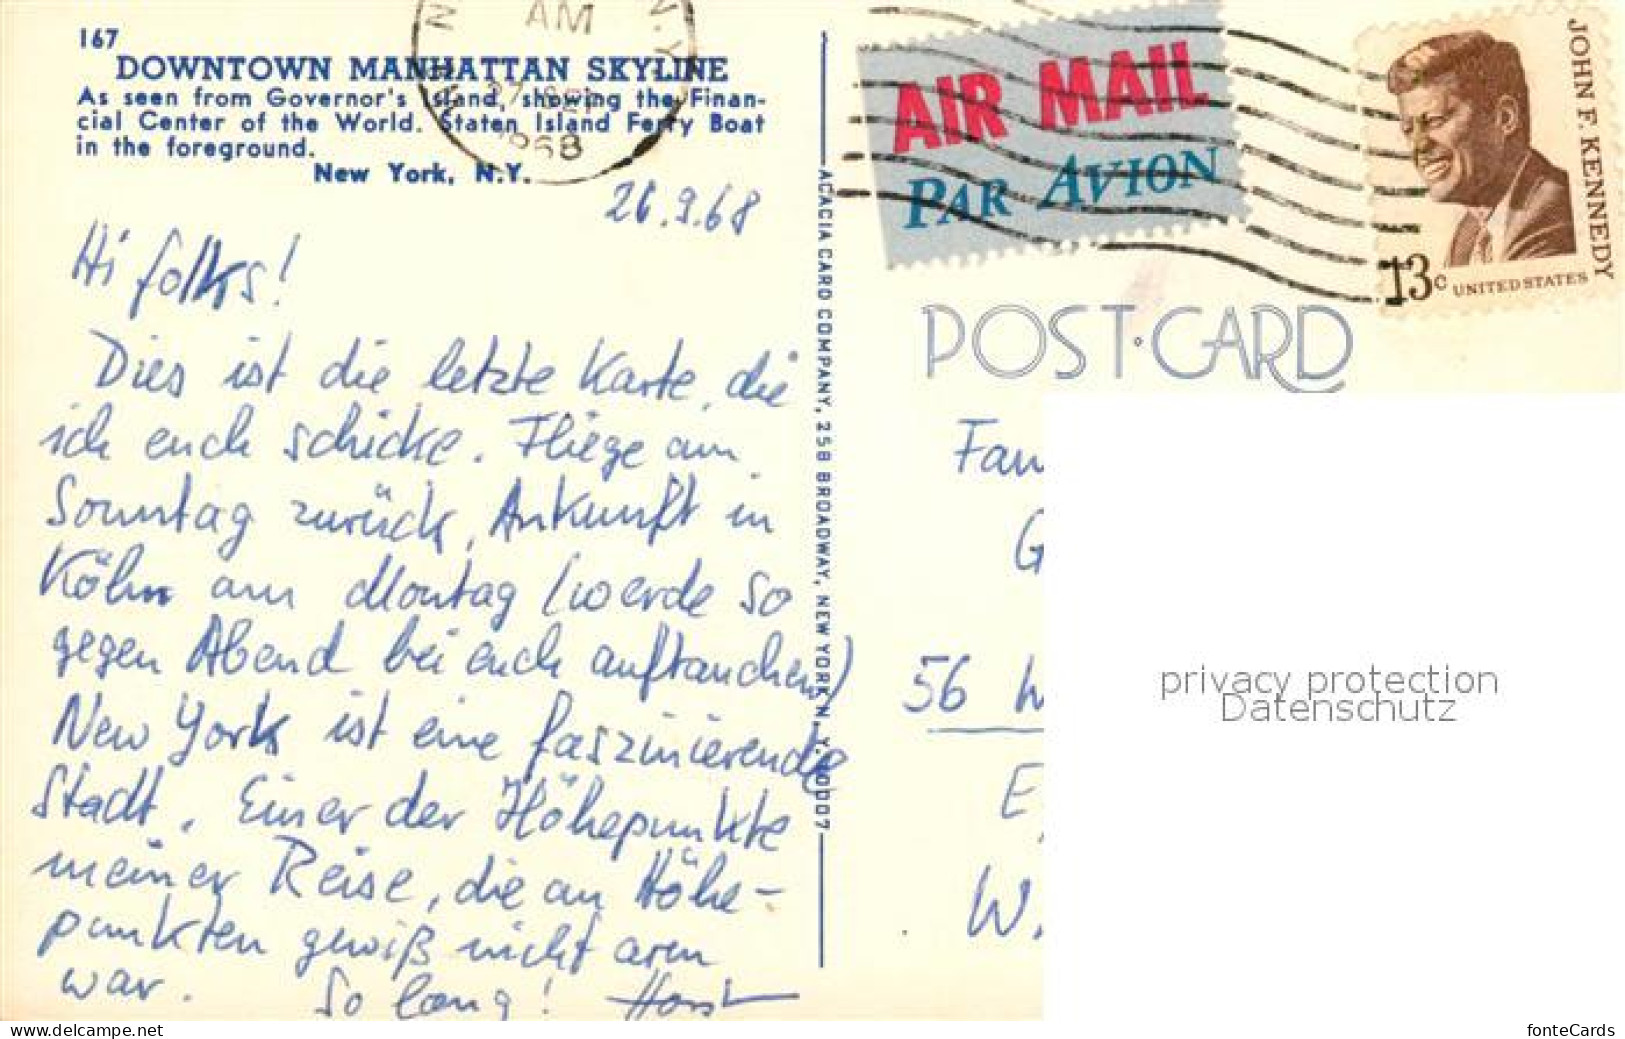 167
DOWNTOWN MANHATTAN SKYLINE
As seen from Governor's Island, showing the Finan-
cial Center of the World. Staten Island Ferry Boat
in the foreground.
New York, N.Y.
AM
27 SEP
1968
26.9.68
Hi folks!
Dies ist die letzte Karte, die
ich euch schicke. Fliege am
Sonntag zurück, Ankunft in
Köln am Montag (werde so
gegen Abend bei euch auftauchen)
New York ist eine faszinierende
Stadt. Einer der Höhepunkte
meiner Reise, die an Höhe-
punkten gewiß nicht arm
war. So long! Horst
ACACIA CARD COMPANY, 258 BROADWAY, NEW YORK N. Y. 10007
AIR MAIL
PAR AVION
JOHN F. KENNEDY
13c UNITED STATES
POST·CARD
Fam
G
56 W
E
W.
privacy protection
Datenschutz
www.delcampe.net
fonteCards